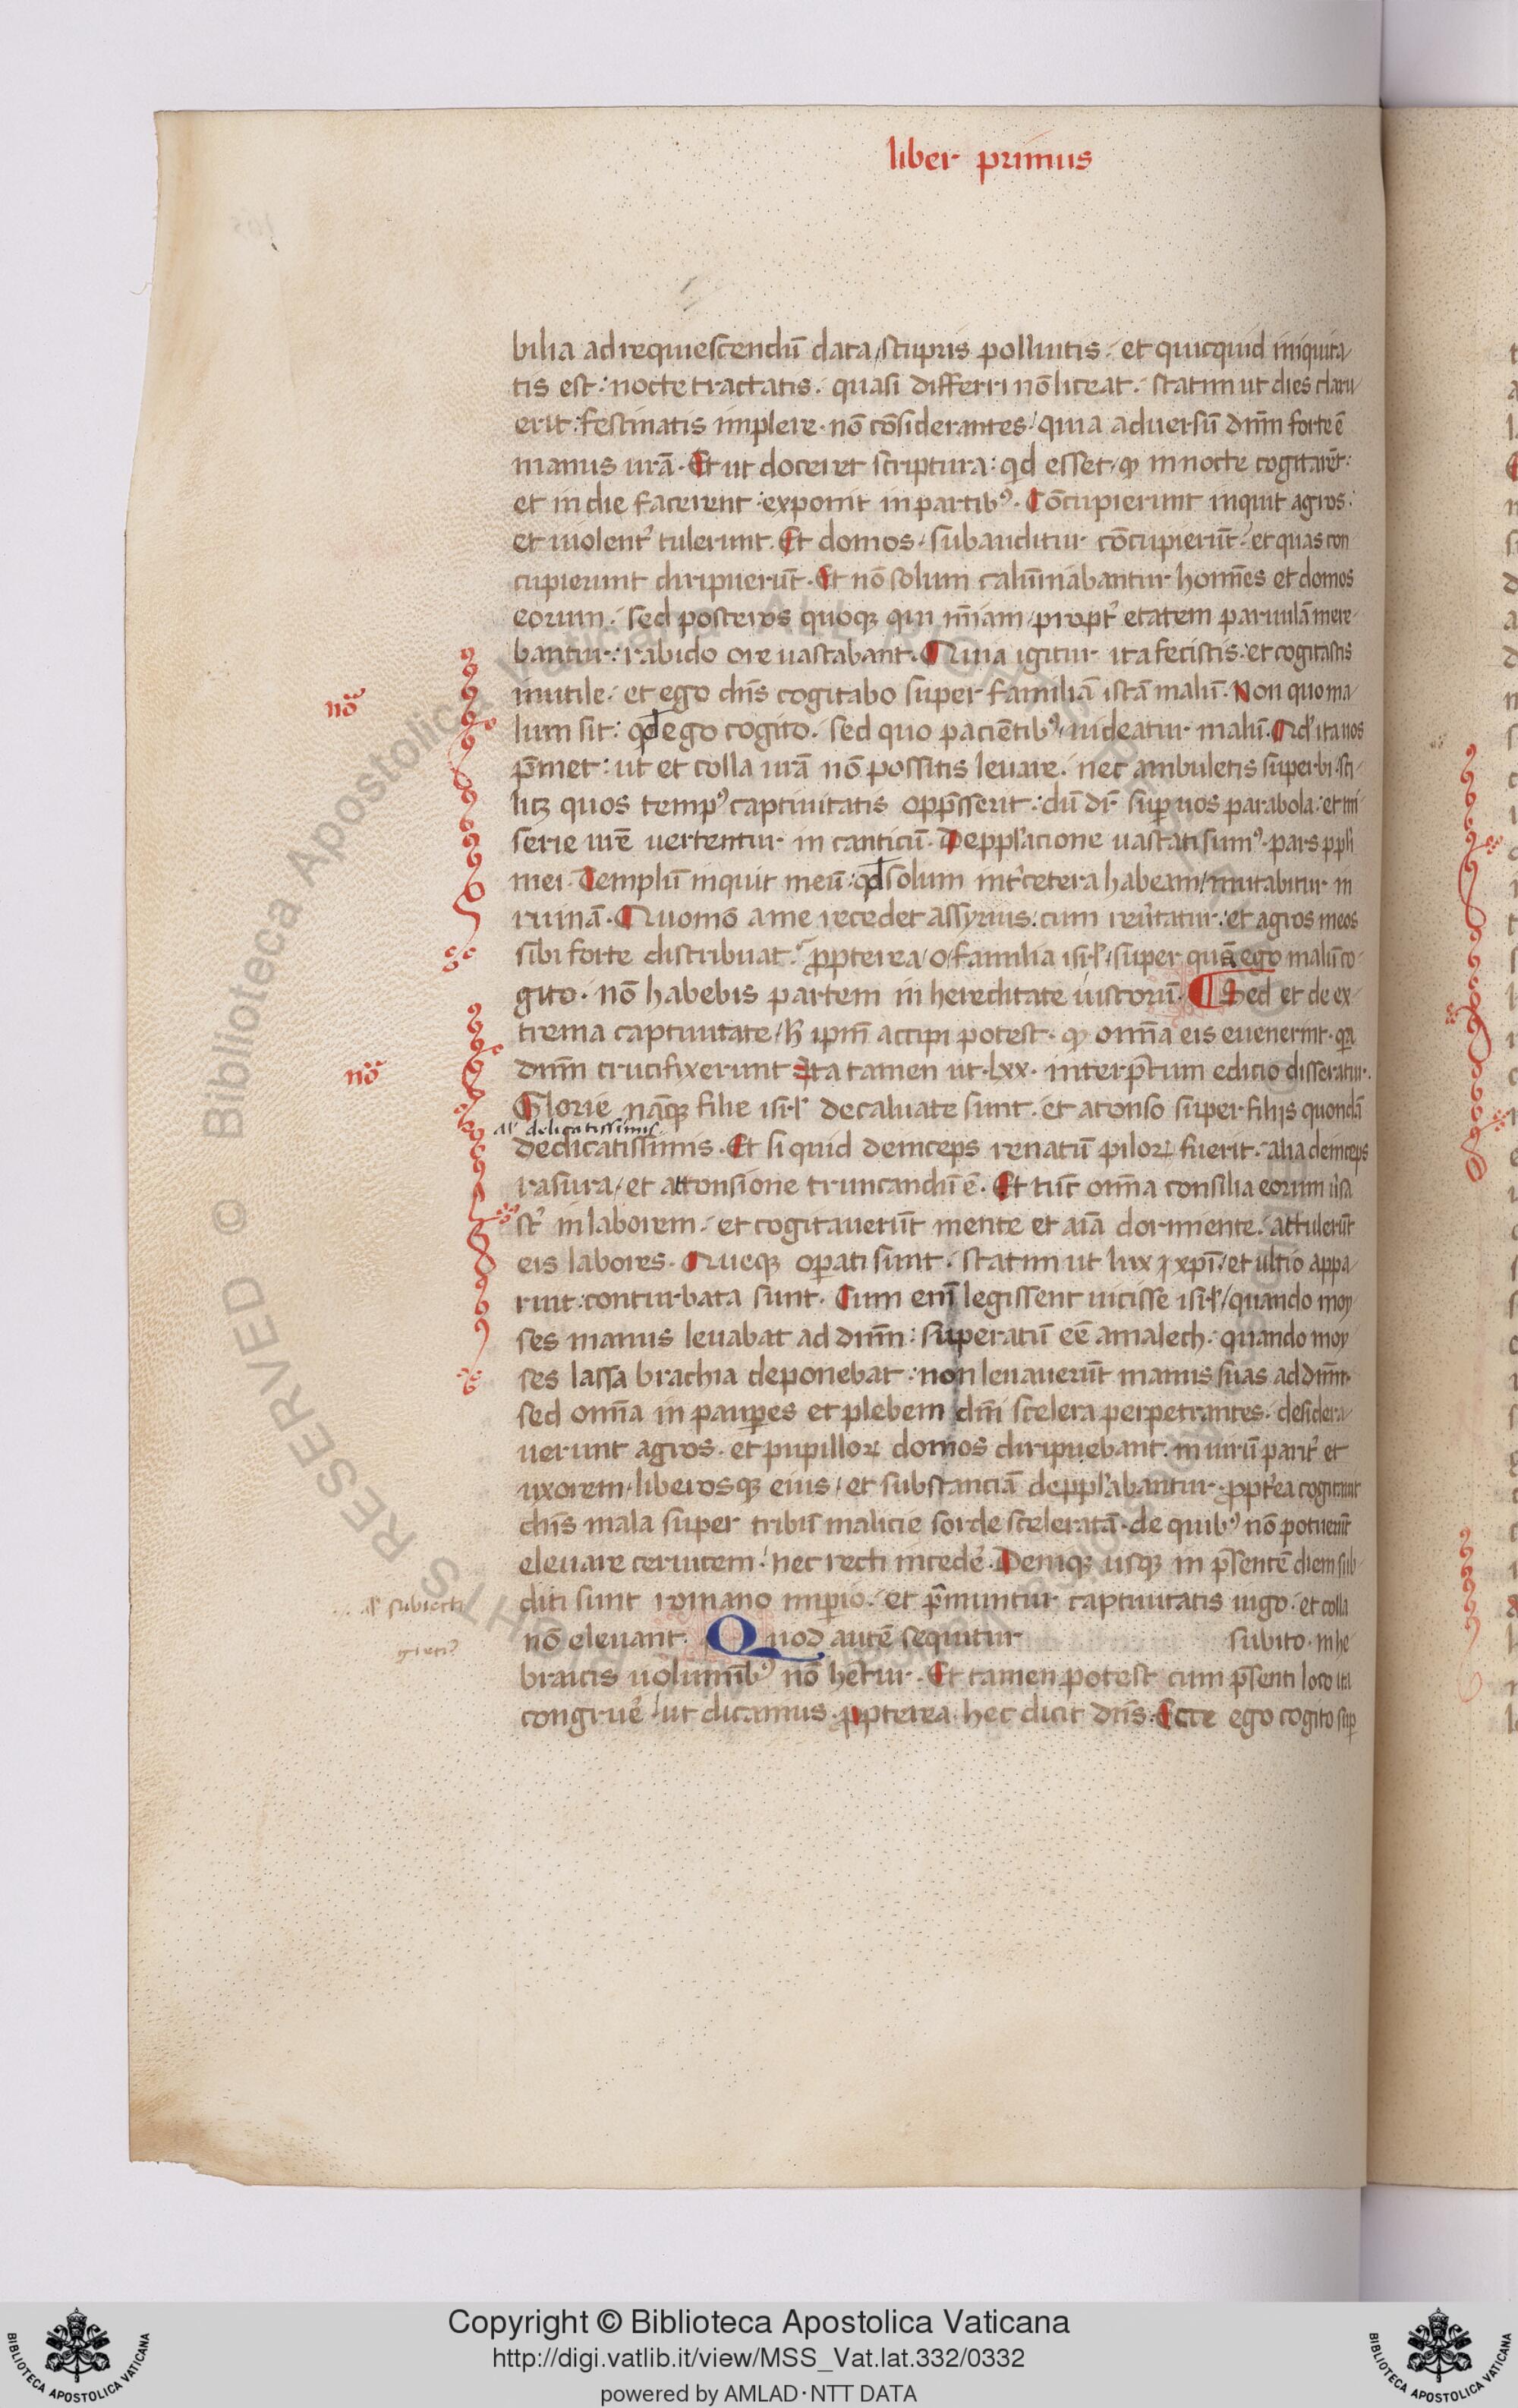 liber primus
bilia ad requiescendū data, stupris polluitis. et quicquid iniquita
tis est: nocte tractatis. quasi differri nō liceat. statim ut dies claru
erit: festinatis implere. nō cōsiderantes, quia aduersū dn̄m forte ē
manus urā. Et ut doceret scriptura: qd esset, qͦ in nocte cogitarēt:
et in die facerent: exponit in partibꝰ. Cōcupierunt inquit agros:
et uiolent᷑ tulerunt. Et domos, subauditur cōcupierūt, et quas con
cupierunt diripuerūt. Et nō solum calūniabantur hoīes et domos
eorum. sed posteros quoqꝫ qui mīam, propt᷑ etatem paruulā mere
bantur: rabido ore uastabant. Quia igitur ita fecistis: et cogitastis
inutile. et ego dn̄s cogitabo super familiā istā malū. Non quo ma
no᷑
lum sit: qđ ego cogito. sed quo paciētibꝰ, uideatur malū. Qđ ita uos
p̄met: ut et colla urā nō possitis leuare. nec ambuletis superbi. sci
licꝫ quos tempꝰ captiuitatis opp̄sserit: dū dr̄ sup uos parabola: et mi
serie urē uertentur in canticū. Deppl'acione uastati sumꝰ. pars ppl'i
mei. Templū inquit meū: qđ solum int᷑ cetera habeam, mutabitur in
ruinā. Quomō a me recedet assyrius: cum reūtatur: et agros meos
sibi forte distribuat. ꝓpterea, o familia isrl', super quā ego malū co
gito. nō habebis partem in hereditate iustorū. ¶ Sed et de ex
trema captiuitate, h̄ ipm̄ accipi potest. qͦ omīa eis euenerint. qa
no᷑
dn̄m crucifixerunt Ita tamen ut .lxx. interp̄tum edicio disseratur.
Glorie nāqꝫ filie isrl' decaluate sunt. et atonso super filijs quondā
al' delicatissimis
dedicatissimis. Et si quid deinceps renatū piloꝝ fuerit. alia deinceps
rasura, et attonsione truncandū ē. Et tūc omīa consilia eorum ūsa
st᷑ in laborem. et cogitauerūt mente et aīa dormiente. attulerūt
eis labores. Queqꝫ opati sunt. statim ut lux xpī, et ultio appa
ruit: conturbata sunt. Cum enī legissent uicisse isrl', quando moy
ses manus leuabat ad dn̄m: superatū eē amalech. quando moy
ses lassa brachia deponebat: non leuauerūt manus suas ad dn̄m.
sed omīa in paupes et plebem dn̄i scelera perpetrantes. desidera
uerunt agros. et pupilloꝝ domos diripuebant. in uirū parit᷑ et
uxorem, liberosqꝫ eius, et substanciā deppl'abantur. ꝓpt᷑ea cogitauit
dn̄s mala super tribū malicie sorde sceleratā. de quibꝰ nō potuerūt
eleuare ceruicem. nec recti incede᷑. Deniqꝫ usqꝫ in p̄sentē diem sub
al' subiecti
diti sunt romano impio. et p̄muntur captiuitatis iugo. et colla
nō eleuant. Quod autē sequitur subito. in he
braicis uoluminibꝰ nō het᷑ur. Et tamen potest cum p̄senti loco ita
congrue᷑. ut dicamus. ꝓpterea. hec dicit dn̄s. Ecce ego cogito sup
Copyright © Biblioteca Apostolica Vaticana
http://digi.vatlib.it/view/MSS_Vat.lat.332/0332
powered by AMLAD·NTT DATA
BIBLIOTECA APOSTOLICA VATICANA
BIBLIOTECA APOSTOLICA VATICANA